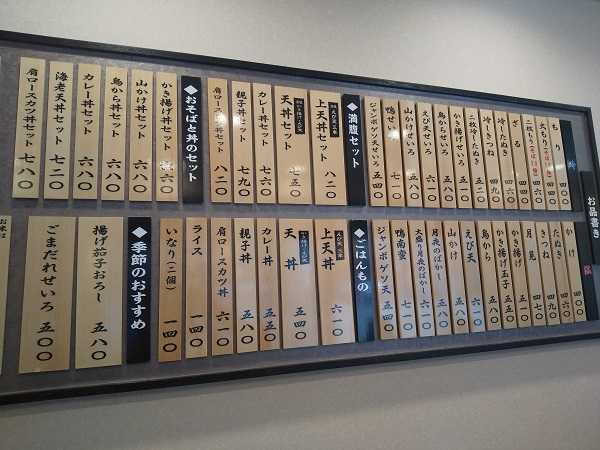 お品書き
冷
もり 四一〇
大もり
二枚もり
ざる 四四〇
冷したぬき 四九〇
冷しきつね
二枚冷したぬき
かき揚げせいろ
鳥からせいろ
えび天せいろ
山かけせいろ 五八〇
鴨せいろ 七一〇
ジャンボゲソ天せいろ 五四〇
◆満腹セット
上天丼セット 八二〇
天丼セット 七五〇
カレー丼セット 七六〇
親子丼セット 七九〇
肩ロースカツ丼セット 八二〇
◆おそばと丼のセット
かき揚げ丼セット
山かけ丼セット 六八〇
鳥から丼セット 六八〇
カレー丼セット 六八〇
海老天丼セット 七二〇
肩ロースカツ丼セット 七八〇
温
かけ
たぬき
きつね 四七〇
月見
かき揚げ
かき揚げ玉子
鳥から 五八〇
えび天 六一〇
山かけ 五八〇
月夜のばかし
大盛り月夜のばかし
鴨南蛮 七一〇
ジャンボゲソ天 五四〇
◆ごはんもの
上天丼 六一〇
天丼 五四〇
カレー丼 五五〇
親子丼 五八〇
肩ロースカツ丼 六一〇
ライス 一四〇
いなり(二個) 一四〇
◆季節のおすすめ
揚げ茄子おろし 五八〇
ごまだれせいろ 五〇〇